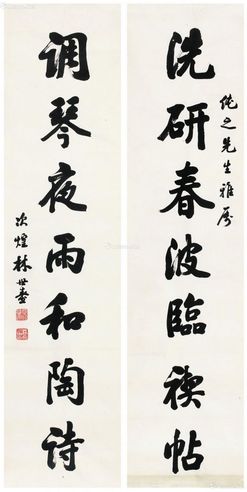 洗研春波臨禊帖
佗之先生雅屬
调琴夜雨和陶诗
次煌林世燾